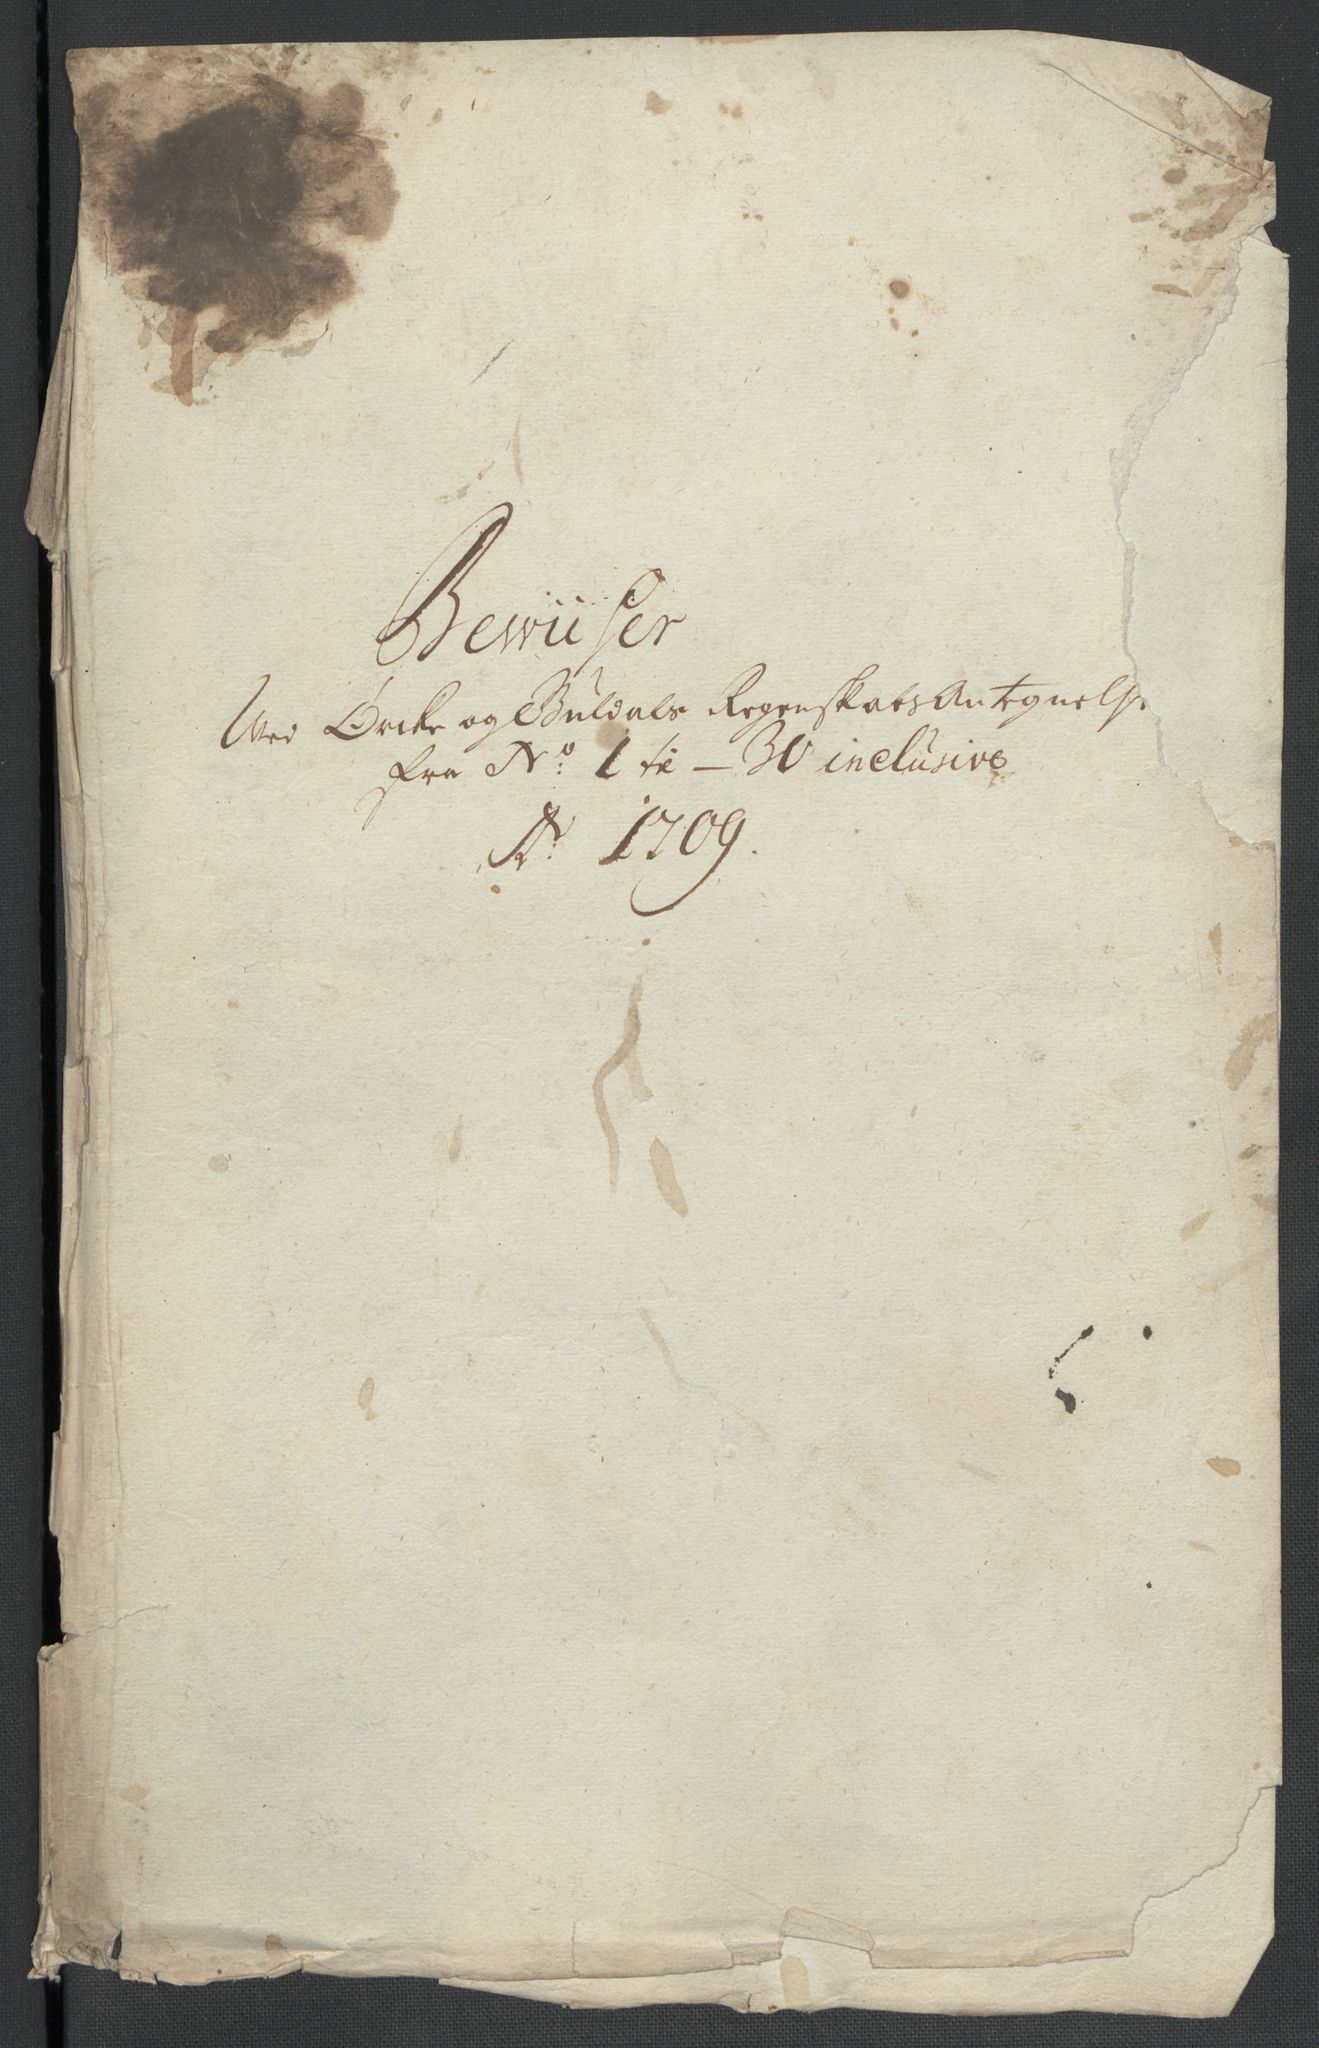 Bewiiser
WedØrcke og Guldals Regenskabs Antegnelse
fra No: 1 til – 30 inclusive
Ao: 1709.